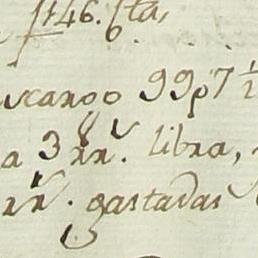 1746. fta,
ucanoo 99p7 1/2
a 3 rr̃. libra,
rr̃. gastadas